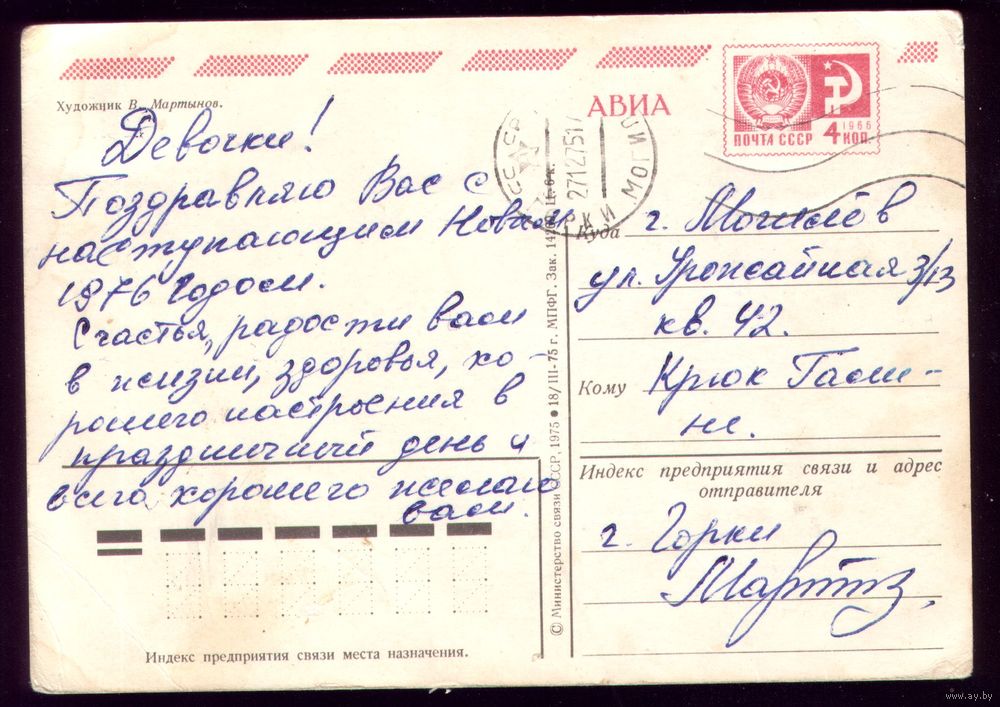 Художник В. Мартынов.
АВИА
ПОЧТА СССР
4 1966
КОП.
27127517
КИ МОГИ
Девочки!
Поздравляю Вас с
наступающим Новым
1976 Годом.
Счастья, радости вам
в жизни, здоровья, хо-
рошего настроения в
праздничный день и
всего хорошего желаю
вам.
Куда г. Могилёв
ул. Урожайная 3/13
кв. 42.
Кому Крюк Гали-
не.
Индекс предприятия связи и адрес
отправителя
г. Горки
Индекс предприятия связи места назначения.
© Министерство связи СССР, 1975 ● 18/III-75 г. МПФГ. Зак. Ц. 6 к.
www.ay.by